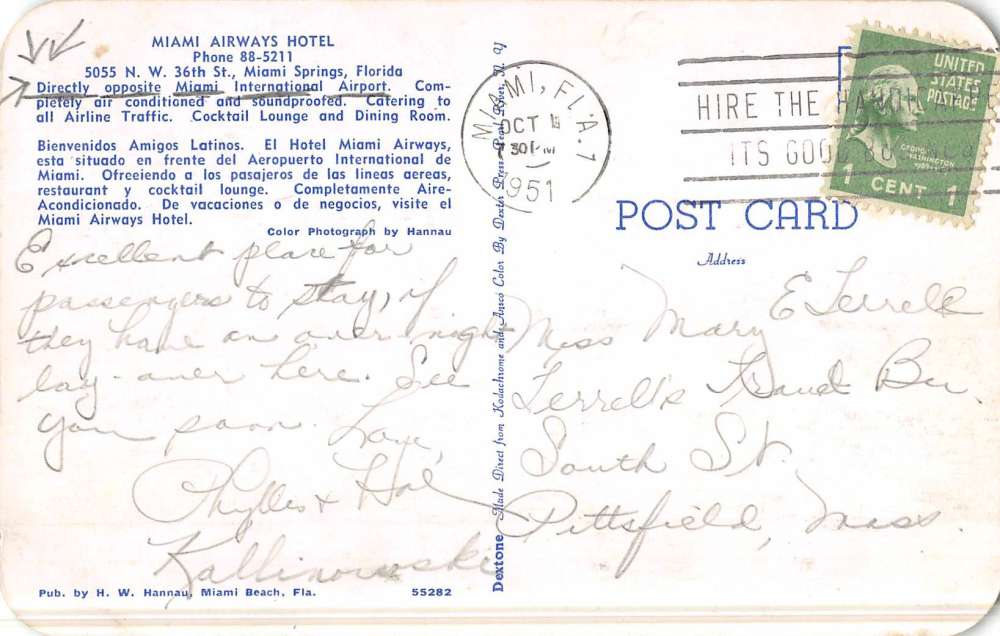 MIAMI AIRWAYS HOTEL
Phone 88-5211
5055 N. W. 36th St., Miami Springs, Florida
Directly opposite Miami International Airport. Com-
pletely air conditioned and soundproofed. Catering to
all Airline Traffic. Cocktail Lounge and Dining Room.
Bienvenidos Amigos Latinos. El Hotel Miami Airways,
esta situado en frente del Aeropuerto International de
Miami. Ofreeiendo a los pasajeros de las lineas aereas,
restaurant y cocktail lounge. Completamente Aire-
Acondicionado. De vacaciones o de negocios, visite el
Miami Airways Hotel.
Color Photograph by Hannau
Excellent place for
passengers to stay, if
they have an over night
lay-over here. See
you soon. Love,
Phyllis & Hal
Kallinowski
Pub. by H. W. Hannau, Miami Beach, Fla.
55282
Dextone Made Direct from Kodachrome and Ansco Color By Dexter Press, Pearl River, N. Y
MIAMI, FLA. 7
OCT
730 PM
1951
HIRE THE
ITS GOOD
UNITED
STATES
POSTAGE
GEORGE
WASHINGTON
1 CENT 1
POST CARD
Address
Miss Mary E Terrell
Terrell's Travel Bu.
South St.
Pittsfield, Mass.